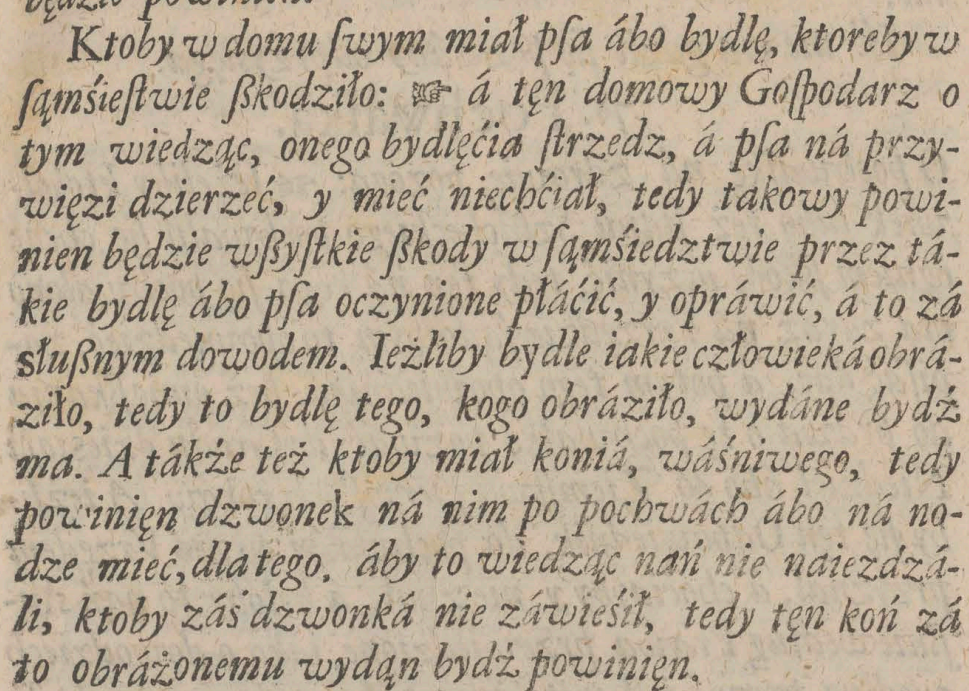 będzie powinien.
Ktoby w domu ſwym miał pſa ábo bydlę, ktoreby w
ſąmśieſtwie ſßkodziło: ☞ á tęn domowy Goſpodarz o
tym wiedząc, onego bydlęćia ſtrzedz, á pſa ná przy-
więzi dzierzeć, y mieć niechćiał, tedy takowy powi-
nien będzie wſßyſtkie ſßkody w ſąmśiedztwie przez tá-
kie bydlę ábo pſa oczynione płáćić, y opráwić, á to zá
słuſßnym dowodem. Ieżliby bydle iakie człowieká obrá-
ziło, tedy to bydlę tego, kogo obráziło, wydáne bydź
ma. A tákże też ktoby miał koniá, wáśniwego, tedy
powinięn dzwonek ná nim po pochwách ábo ná no-
dze mieć, dla tego, áby to wiedząc nań nie naiezdzá-
li, ktoby záś dzwonká nie záwieśił, tedy tęn koń zá
to obráżonemu wydąn bydź powinięn.